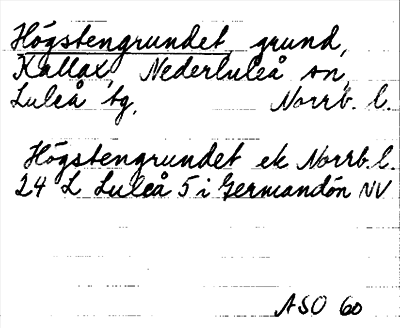 Högstengrundet, grund,
Kallax, Nederluleå sn,
Luleå tg, Norrb. l.
Högstengrundet ek Norrb. l.
24 L Luleå 5 i Germandön NV
ASO 60